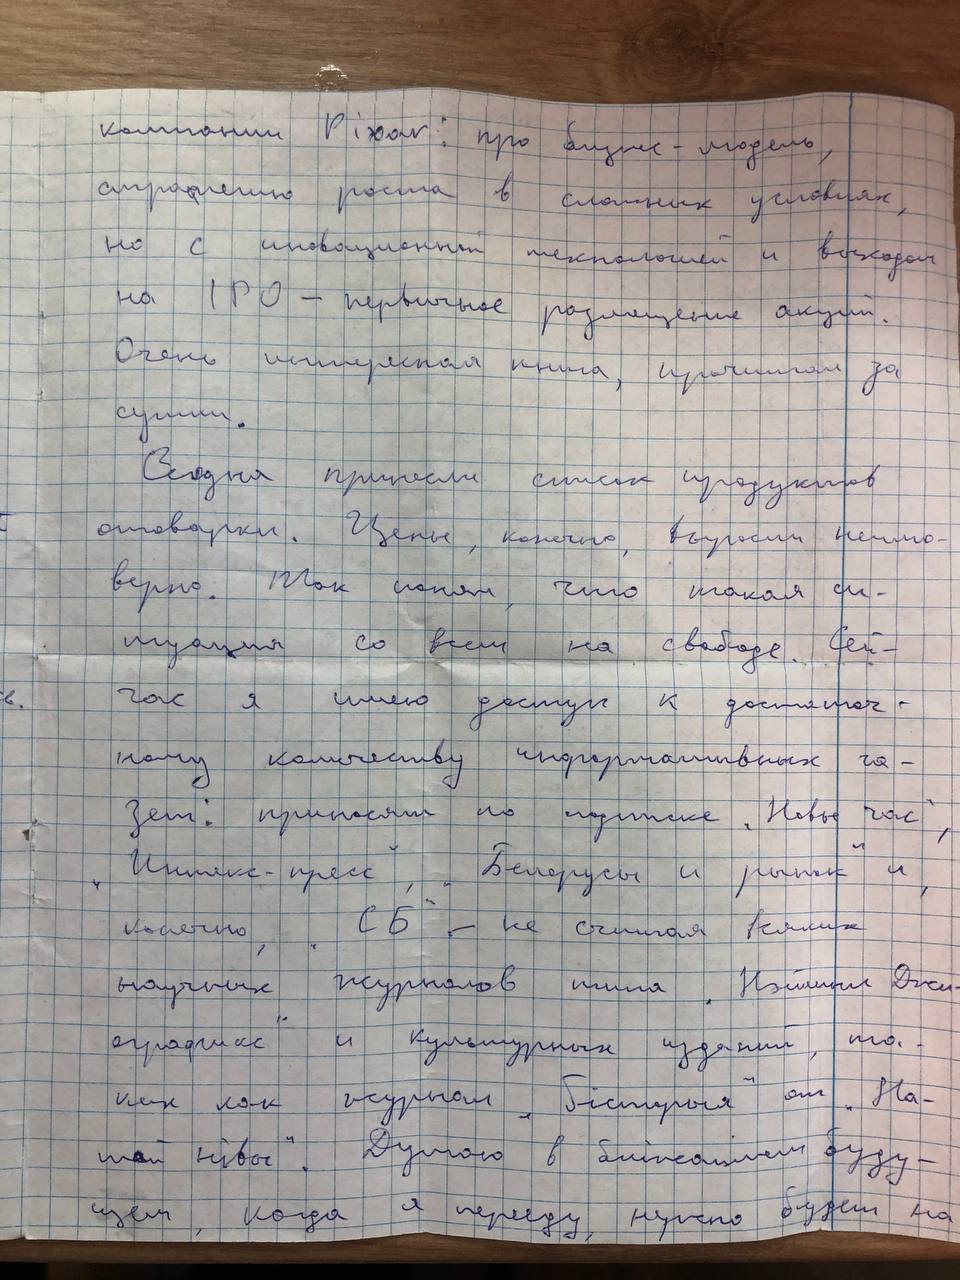 компании Pixar: про бизнес-модель,
стратегию роста в сложных условиях,
но с иновационной технологией и выходом
на IPO – первичное размещение акций.
Очень интересная книга, прочитал за
сутки.
Сегодня принесли список продуктов
отоварки. Цены, конечно, выросли неимо-
верно. Так понял, что такая си-
туация со всем на свободе. Сей-
час я имею доступ к достаточ-
ному количеству информативных га-
зет: приносят по подписке „Новы час",
„Интекс-пресс", „Белорусы и рынок" и,
конечно, „СБ" – не считая всяких
научных журналов типа „Нэйшнл Джи-
ографикс" и культурных изданий, та-
ких как журнал „Бістрыя" от „На-
шай нівы". Думаю в ближайшем буду-
щем, когда я перееду, нужно будет на